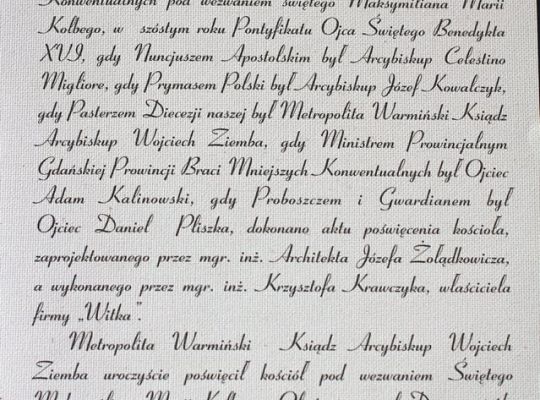 Konwentualnych pod wezwaniem świętego Maksymiliana Marii
Kolbego, w szóstym roku Pontyfikatu Ojca Świętego Benedykta
XVI, gdy Nuncjuszem Apostolskim był Arcybiskup Celestino
Migliore, gdy Prymasem Polski był Arcybiskup Józef Kowalczyk,
gdy Pasterzem Diecezji naszej był Metropolita Warmiński Ksiądz
Arcybiskup Wojciech Ziemba, gdy Ministrem Prowincjalnym
Gdańskiej Prowincji Braci Mniejszych Konwentualnych był Ojciec
Adam Kalinowski, gdy Proboszczem i Gwardianem był
Ojciec Daniel Pliszka, dokonano aktu poświęcenia kościoła,
zaprojektowanego przez mgr. inż. Architekta Józefa Żołądkowicza,
a wykonanego przez mgr. inż. Krzysztofa Krawczyka, właściciela
firmy „Witka”.
Metropolita Warmiński Ksiądz Arcybiskup Wojciech
Ziemba uroczyście poświęcił kościół pod wezwaniem Świętego